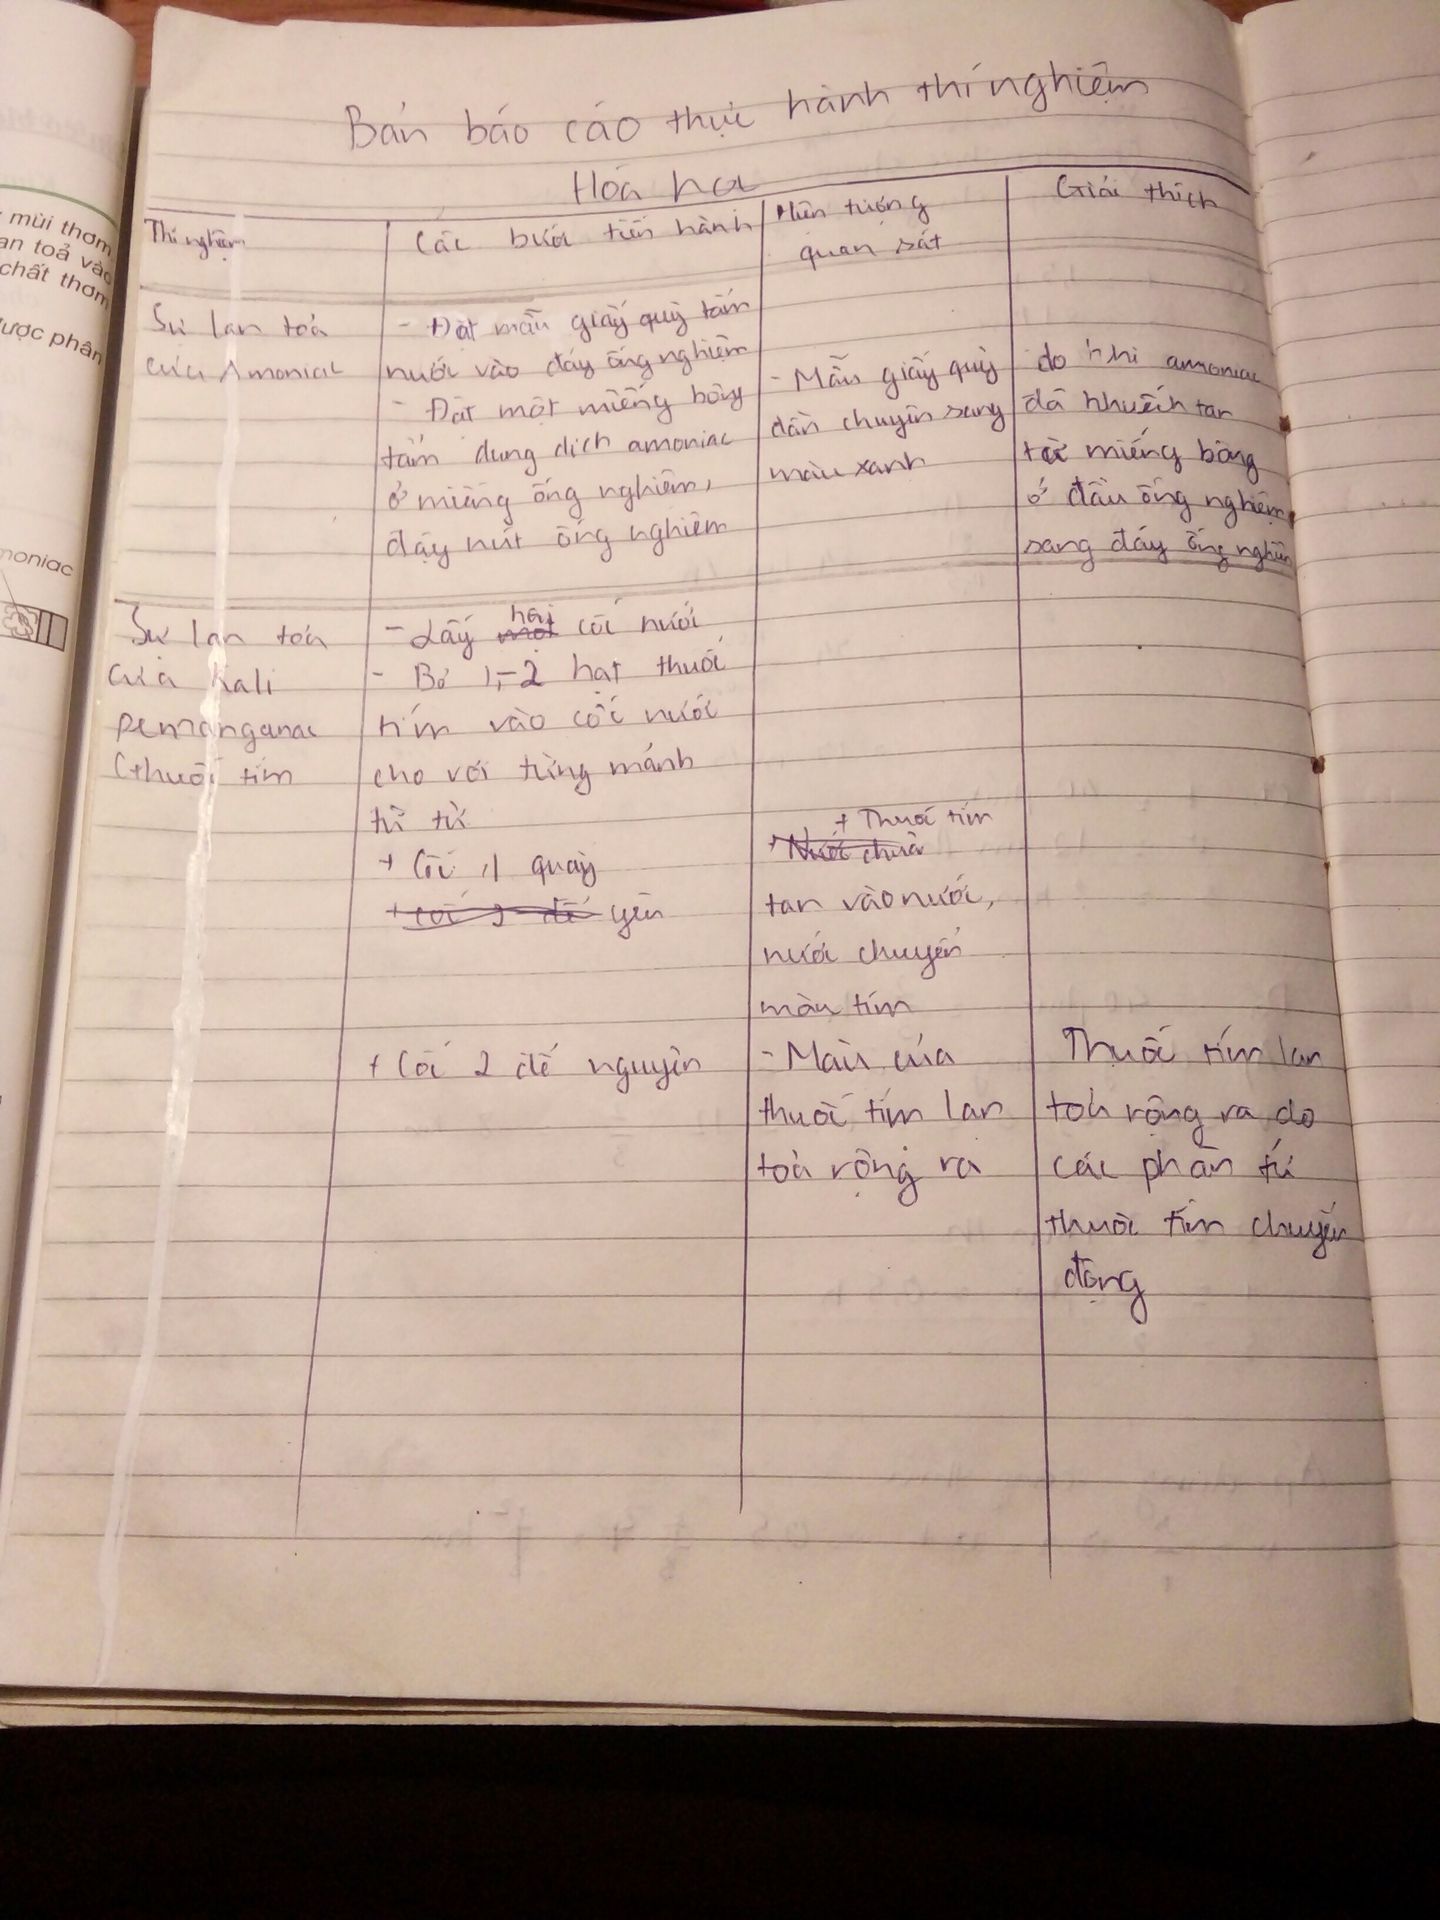 Bản báo cáo thực hành thí nghiệm
Hóa học
Thí nghiệm
Các bước tiến hành
Hiện tượng
quan sát
Giải thích
Sự lan toả
của Amoniac
- Đặt mẩu giấy quỳ tẩm
nước vào đáy ống nghiệm
- Đặt một miếng bông
tẩm dung dịch amoniac
ở miệng ống nghiệm,
đậy nút ống nghiệm
- Mẩu giấy quỳ
dần chuyển sang
màu xanh
do khí amoniac
đã khuếch tan
từ miếng bông
ở đầu ống nghiệm
sang đáy ống nghiệm
Sự lan toả
của kali
pemanganac
(thuốc tím
- Lấy hai cốc nước
- Bỏ 1-2 hạt thuốc
tím vào cốc nước
cho rơi từng mảnh
từ từ
+ Cốc 1 quấy
yên
+ Cốc 2 để nguyên
+ Thuốc tím
tan vào nước,
nước chuyển
màu tím
- Màu của
thuốc tím lan
toả rộng ra
Thuốc tím lan
toả rộng ra do
các phân tử
thuốc tím chuyển
động
mùi thơm
an toả vào
chất thơm
được phân
moniac